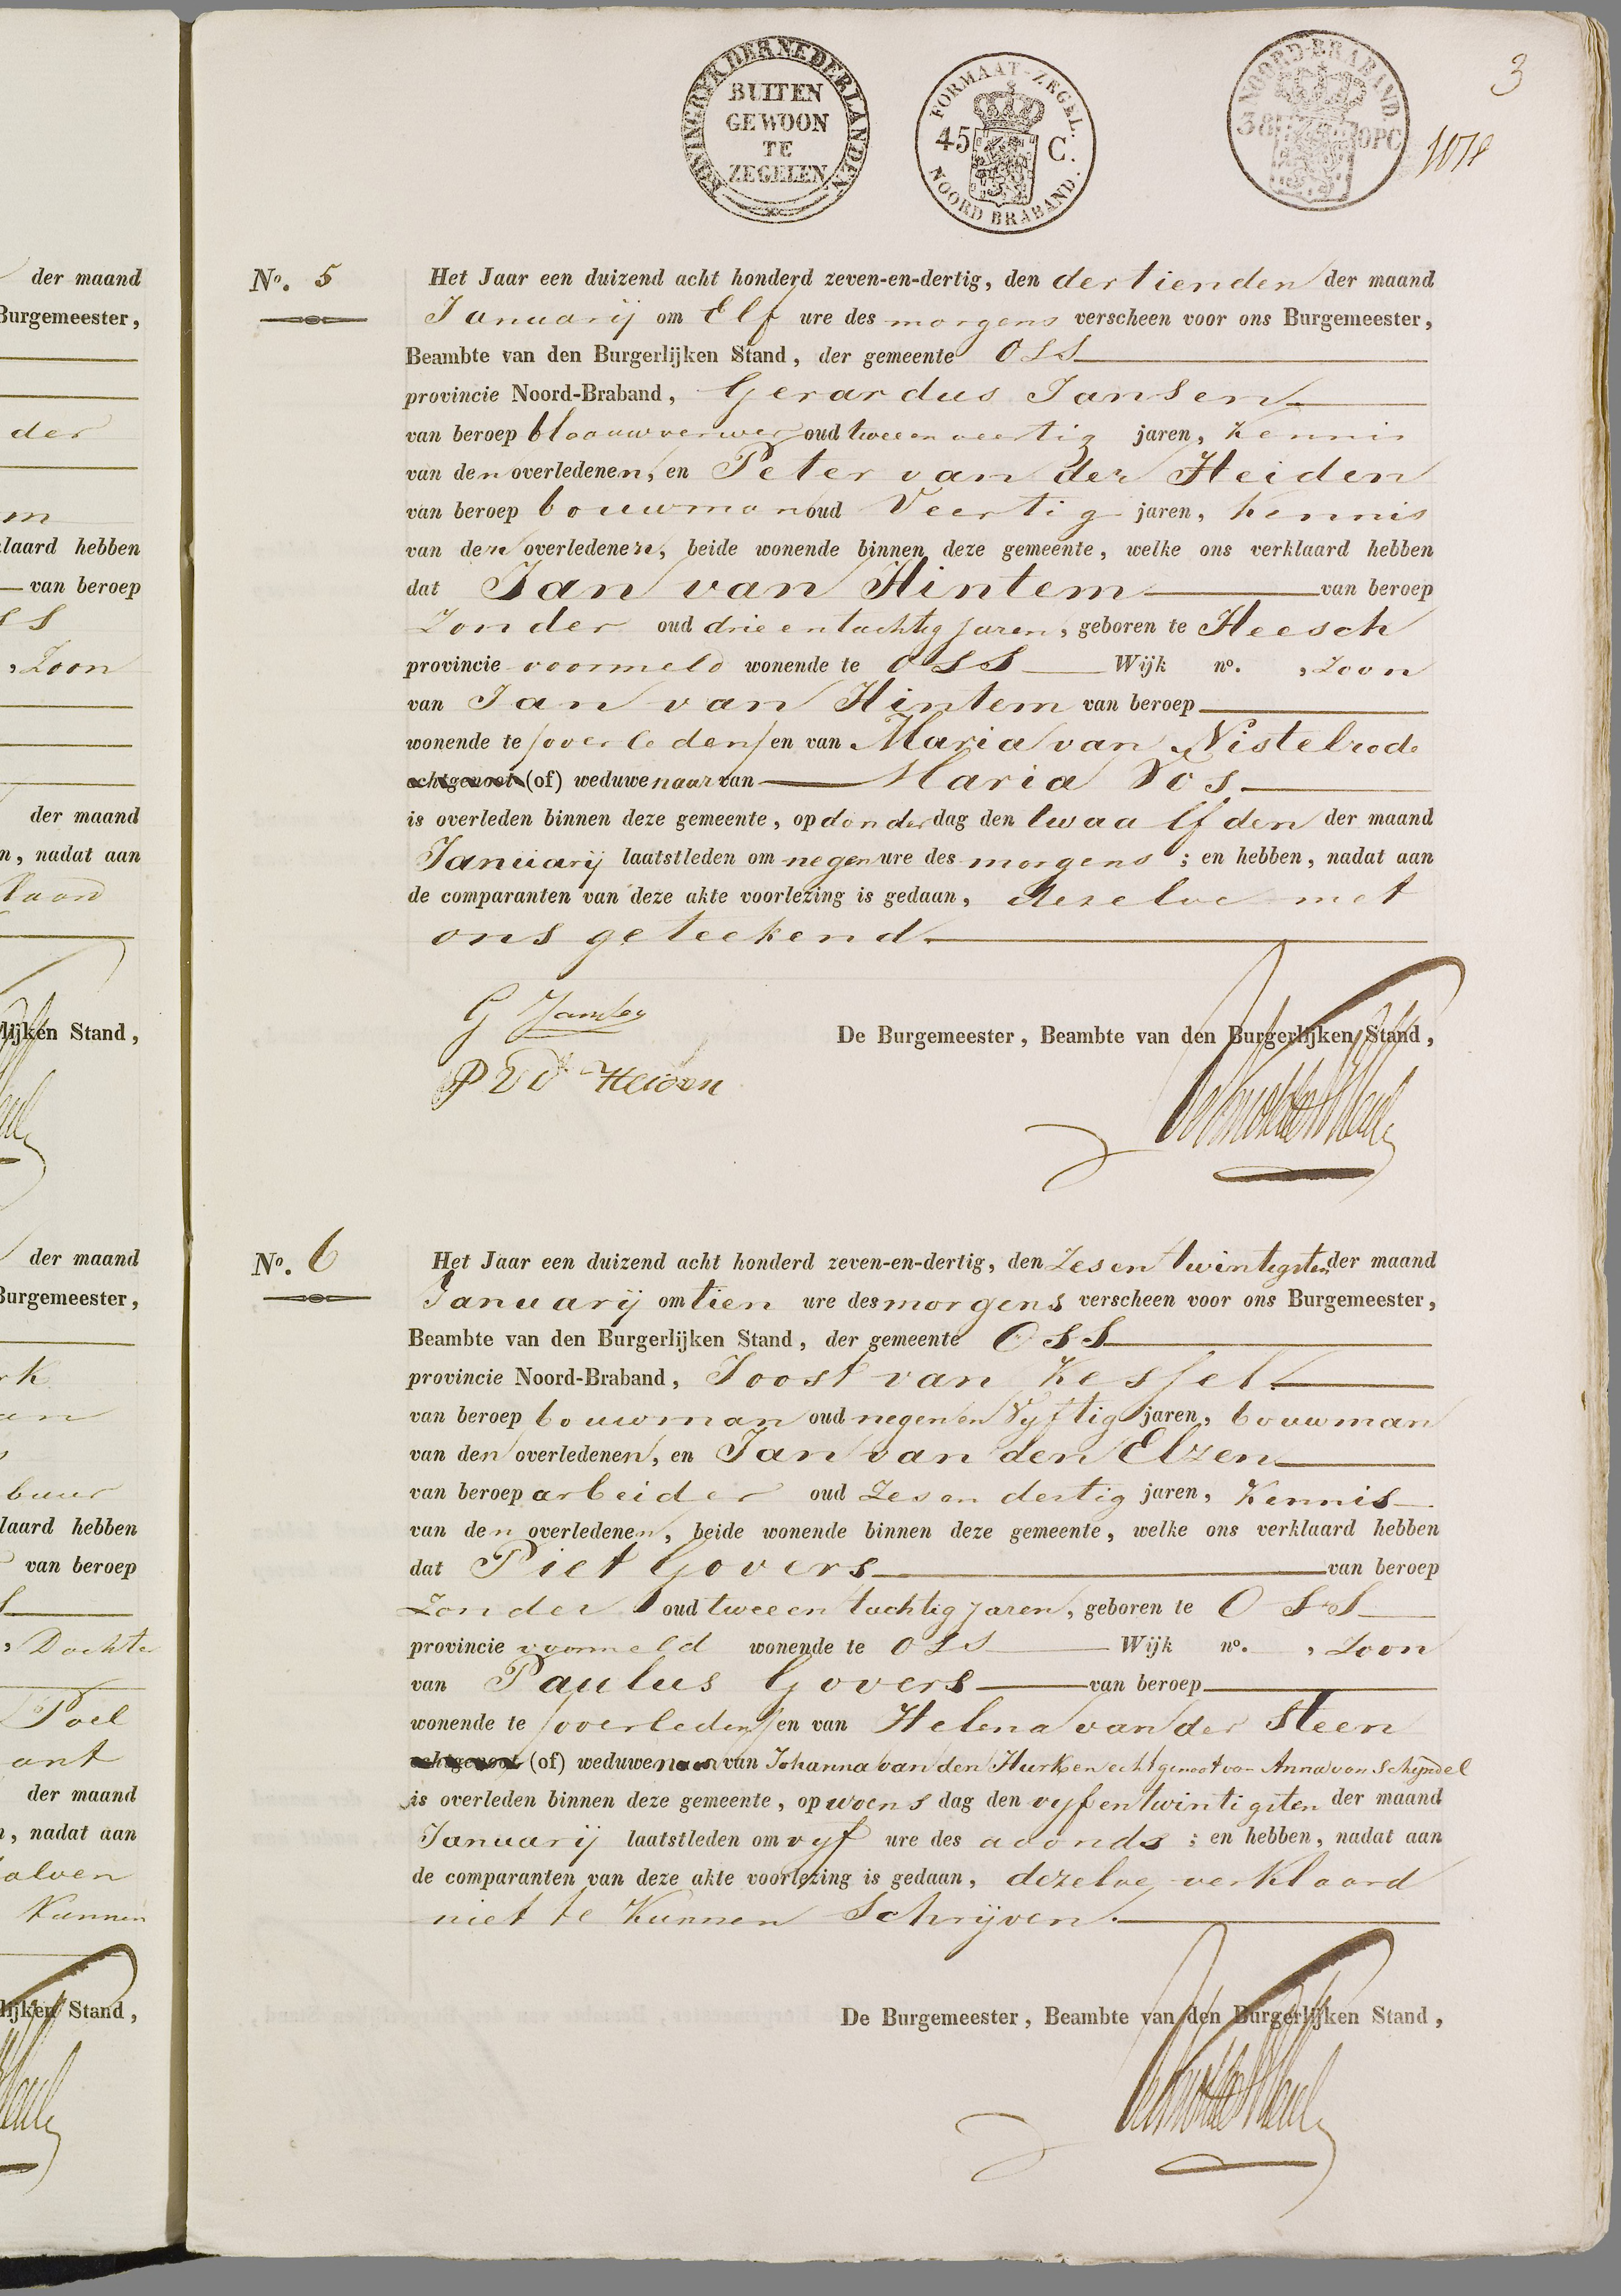 der maand
Burgemeester,
der
m
laard hebben
van beroep
ss
, Zoon
der maand
n, nadat aan
laard
lijken Stand,
der maand
Burgemeester,
rk
an
buur
laard hebben
van beroep
, Dochter
Poel
ant
der maand
n, nadat aan
alven
Kunnen
lijken Stand,
KONINGRYK DER NEDERLANDEN
BUITEN
GEWOON
TE
ZEGELEN
FORMAAT-ZEGEL.
45 C.
NOORD BRABAND.
NOORD-BRABAND
38 OPC
3
No. 5
Het Jaar een duizend acht honderd zeven-en-dertig, den dertienden der maand
Januarij om Elf ure des morgens verscheen voor ons Burgemeester,
Beambte van den Burgerlijken Stand, der gemeente Oss
provincie Noord-Braband, Gerardus Jansen
van beroep blaauwverwer oud twee en veertig jaren, Kennis
van den overledenen, en Peter van der Heiden
van beroep bouwman oud Veertig jaren, Kennis
van den overledenen, beide wonende binnen deze gemeente, welke ons verklaard hebben
dat Jan van Hintem van beroep
Zonder oud drie en tachtig jaren, geboren te Heesch
provincie voormeld wonende te Oss Wijk no. , Zoon
van Jan van Hintem van beroep
wonende te /overleden/ en van Maria van Nistelrode
echtgenoot (of) weduwenaar van Maria Vos
is overleden binnen deze gemeente, op donderdag den twaalfden der maand
Januarij laatstleden om negen ure des morgens ; en hebben, nadat aan
de comparanten van deze akte voorlezing is gedaan, dezelve met
ons geteekend.
G Jansen
P V D Heiden
De Burgemeester, Beambte van den Burgerlijken Stand,
No. 6
Het Jaar een duizend acht honderd zeven-en-dertig, den Zes en twintigsten der maand
Januarij om tien ure des morgens verscheen voor ons Burgemeester,
Beambte van den Burgerlijken Stand, der gemeente Oss
provincie Noord-Braband, Joost van Kessel
van beroep bouwman oud negen en Vyftig jaren, bouwman
van den overledenen, en Jan van den Elzen
van beroep arbeider oud Zes en dertig jaren, Kennis
van den overledenen, beide wonende binnen deze gemeente, welke ons verklaard hebben
dat Piet Govers van beroep
Zonder oud twee en tachtig jaren, geboren te Oss
provincie voormeld wonende te Oss Wijk no. , Zoon
van Paulus Govers van beroep
wonende te /overleden/ en van Helena van der Steen
echtgenoot (of) weduwenaar van Johanna van den Hurk en echtgenoot van Anna van Schyndel
is overleden binnen deze gemeente, op woensdag den vyf en twintigsten der maand
Januarij laatstleden om vyf ure des avonds ; en hebben, nadat aan
de comparanten van deze akte voorlezing is gedaan, dezelve verklaard
niet te Kunnen Schrijven.
De Burgemeester, Beambte van den Burgerlijken Stand,